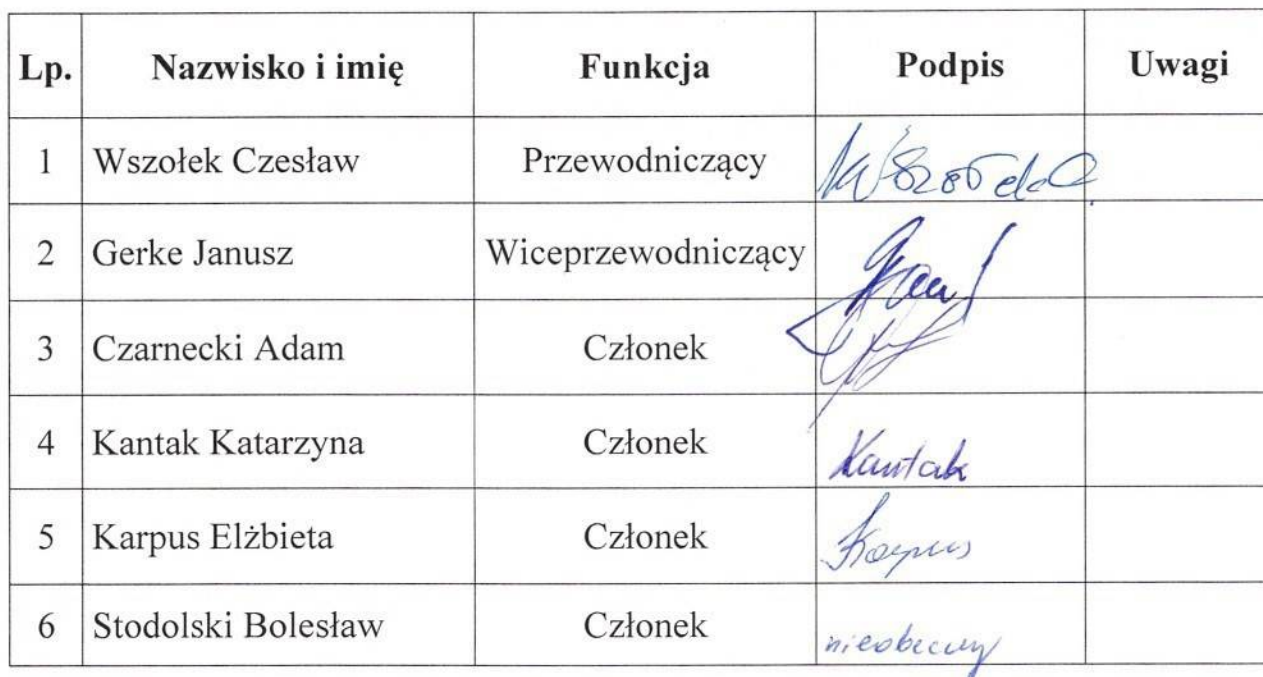 Lp. Nazwisko i imię Funkcja Podpis Uwagi
1 Wszołek Czesław Przewodniczący Wszołek
2 Gerke Janusz Wiceprzewodniczący
3 Czarnecki Adam Członek
4 Kantak Katarzyna Członek Kantak
5 Karpus Elżbieta Członek Karpus
6 Stodolski Bolesław Członek nieobecny